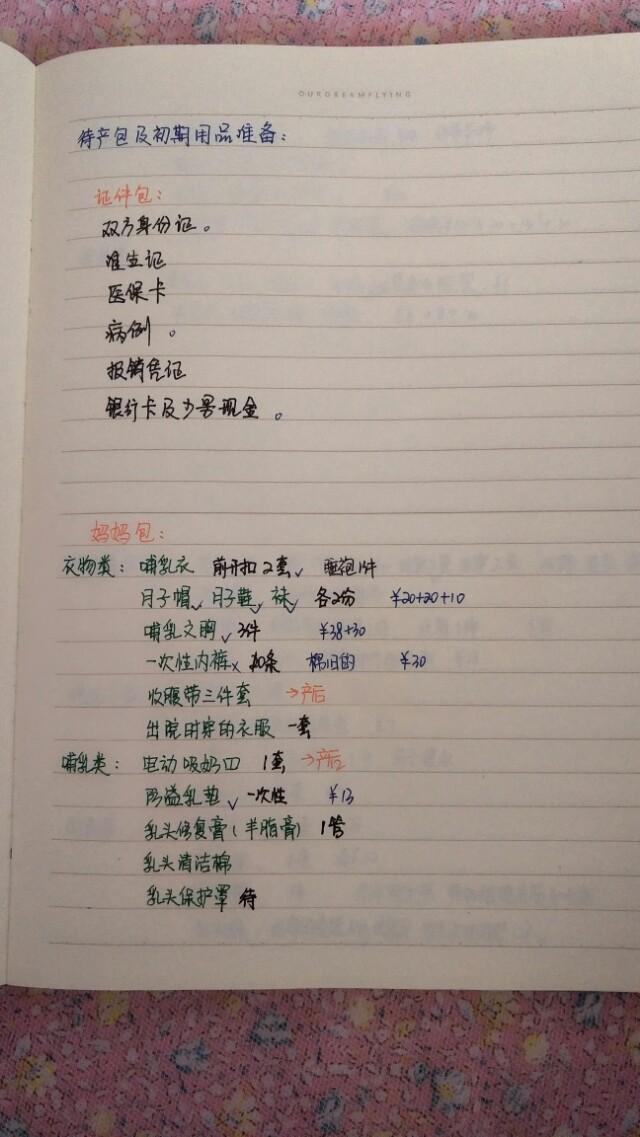 OURDREAMFLYING
待产包及初期用品准备：
证件包：
双方身份证。
准生证
医保卡
病例。
报销凭证
银行卡及少量现金。
妈妈包：
衣物类：哺乳衣 前开扣2套✓ 睡袍1件
月子帽✓ 月子鞋✓ 袜✓ 各2份 ¥20+20+10
哺乳文胸✓ 3件 ¥38+30
一次性内裤x 10条 棉旧的 ¥30
收腹带三件套 →产后
出院时穿的衣服 一套
哺乳类：电动吸奶四 1套 →产后
防溢乳垫✓ 一次性 ¥13
乳头修复膏（羊脂膏）1管
乳头清洁棉
乳头保护罩 待